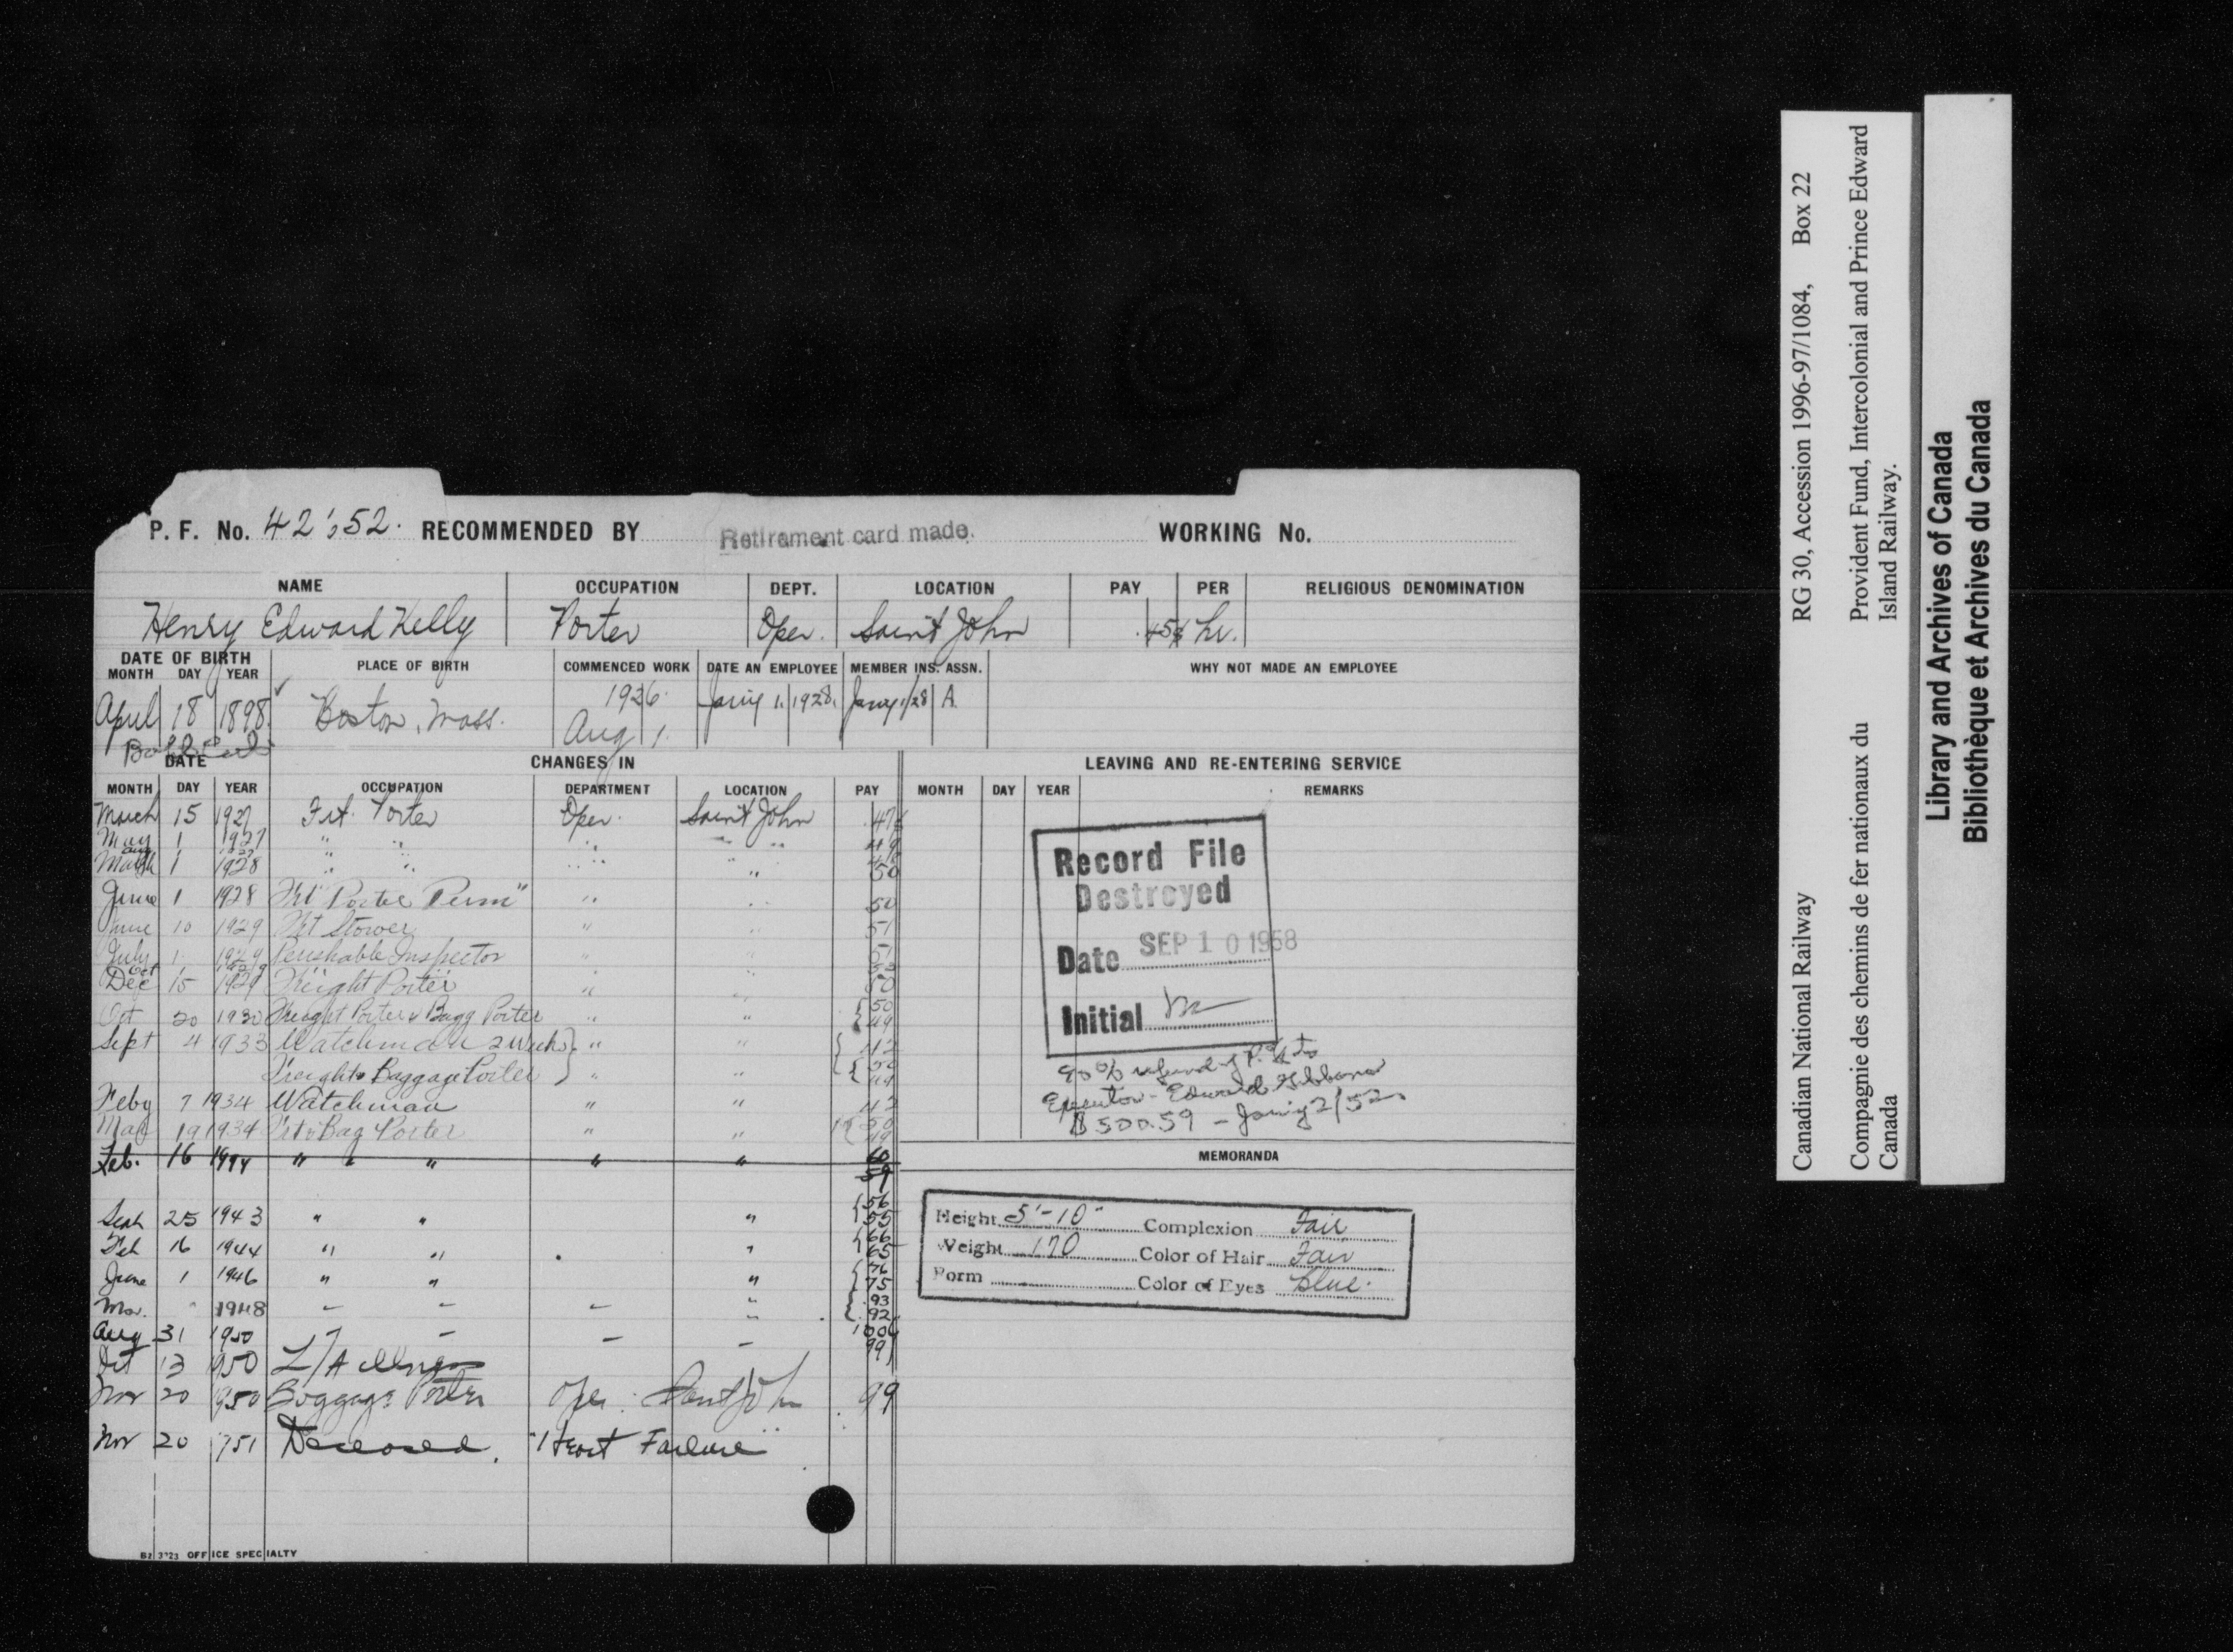 P. F. No. 42,52. RECOMMENDED BY Retirement card made. WORKING No.
NAME OCCUPATION DEPT. LOCATION PAY PER RELIGIOUS DENOMINATION
Henry Edward Kelly Porter Oper. Saint John .45¢ hr.
DATE OF BIRTH PLACE OF BIRTH COMMENCED WORK DATE AN EMPLOYEE MEMBER INS. ASSN. WHY NOT MADE AN EMPLOYEE
MONTH DAY YEAR
April 18 1898 Boston, Mass. 1926. Aug 1. Jan'y 1. 1928. Jan'y 1/28 A.
DATE CHANGES IN LEAVING AND RE-ENTERING SERVICE
MONTH DAY YEAR OCCUPATION DEPARTMENT LOCATION PAY MONTH DAY YEAR REMARKS
March 15 1927 Frt. Porter Oper. Saint John 47¢
May 1 1927 " " " " " "
March 1 1928 " " " " " 50
June 1 1928 Frt Porter Perm" " " 50
June 10 1929 Frt Stower " " 51
July 1 1929 Perishable Inspector " "
Dec 15 1929 Freight Porter " " 50
Oct 20 1930 Freight Porter & Bagg Porter " " 50 49
Sept 4 1933 Watchman 2 Weeks " " 42
Freight & Baggage Porter " " 50 49
Feby 7 1934 Watchman " " 42
May 19 1934 Frt & Bag Porter " " 50 49
Feb. 16 1944 " & " " " 60 59
Sept 25 1943 " " " 56 55
Feb 16 1944 " " " 66 65
June 1 1946 " " " 76 75
Mar. " 1948 – – – " 93 92
Aug 31 1950 – – – 100¢ 99
Oct 13 1950 L/A
Nov 20 1950 Baggage Porter Oper. Saint John .99
Nov 20 '51 Deceased. "Heart Failure"
Record File
Destroyed
Date SEP 10 1958
Initial
90% refund of P.F. to
Executor - Edward Gibbons
$500.59 – Jan'y 2/52.
MEMORANDA
Height 5'-10" Complexion Fair
Weight 170 Color of Hair Fair
Form Color of Eyes Blue.
OFFICE SPECIALTY
Canadian National Railway RG 30, Accession 1996-97/1084, Box 22
Compagnie des chemins de fer nationaux du Canada
Provident Fund, Intercolonial and Prince Edward Island Railway.
Library and Archives of Canada
Bibliothèque et Archives du Canada